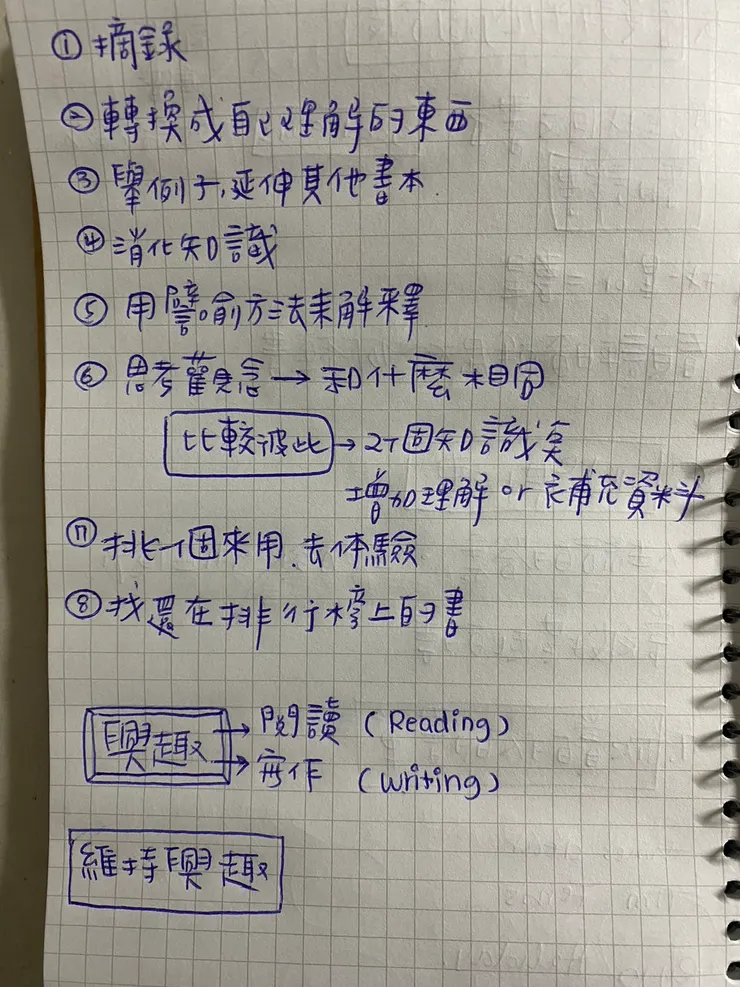 ① 摘錄
② 轉換成自己理解的東西
③ 舉例子,延伸其他書本.
④ 消化知識
⑤ 用譬喻方法來解釋
⑥ 思考觀念 → 和什麼相同
比較彼此 → 2个固知識
增加理解 or 補充資料
⑦ 挑一個來用.去体驗
⑧ 找還在排行榜上的書
興趣 → 閱讀 (Reading)
→ 寫作 (Writing)
維持興趣